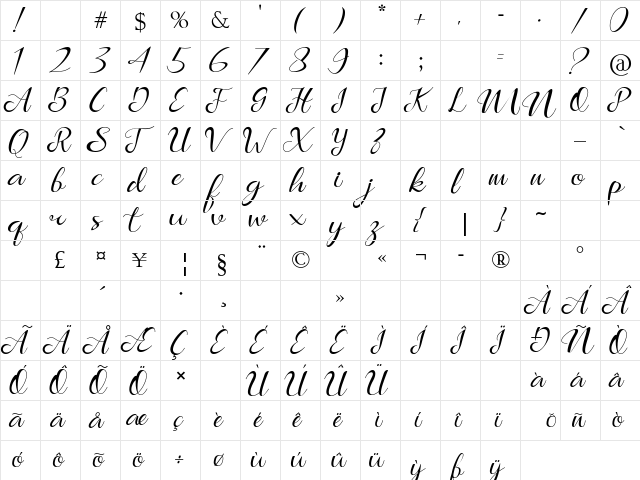 ! # $ % & ' ( ) * + , - . / 0
1 2 3 4 5 6 7 8 9 : ; = ? @
A B C D E F G H I J K L M N O P
Q R S T U V W X Y Z _ `
a b c d e f g h i j k l m n o p
q r s t u v w x y z { | } ~
£ ¤ ¥ ¦ § ¨ © « ¬ - ® °
´ · ¸ » À Á Â
Ã Ä Å Æ Ç È É Ê Ë Ì Í Î Ï Ð Ñ Ò
Ó Ô Õ Ö × Ù Ú Û Ü à á â
ã ä å æ ç è é ê ë ì í î ï ð ñ ò
ó ô õ ö ÷ ø ù ú û ü ý þ ÿ